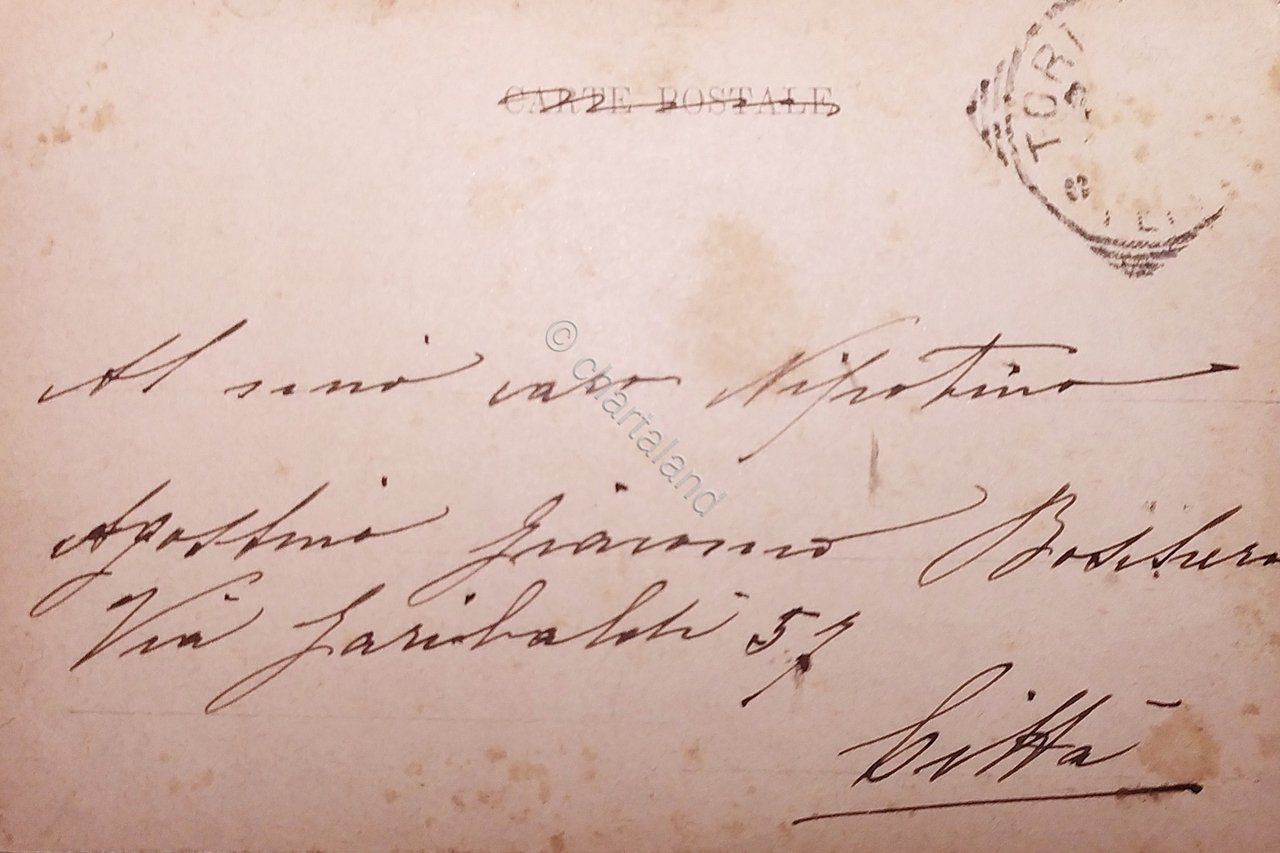 CARTE POSTALE
TORI
8
© chartaland
Al mio caro Nipotino
Agostino Giacomo
Via Garibaldi 57
Città